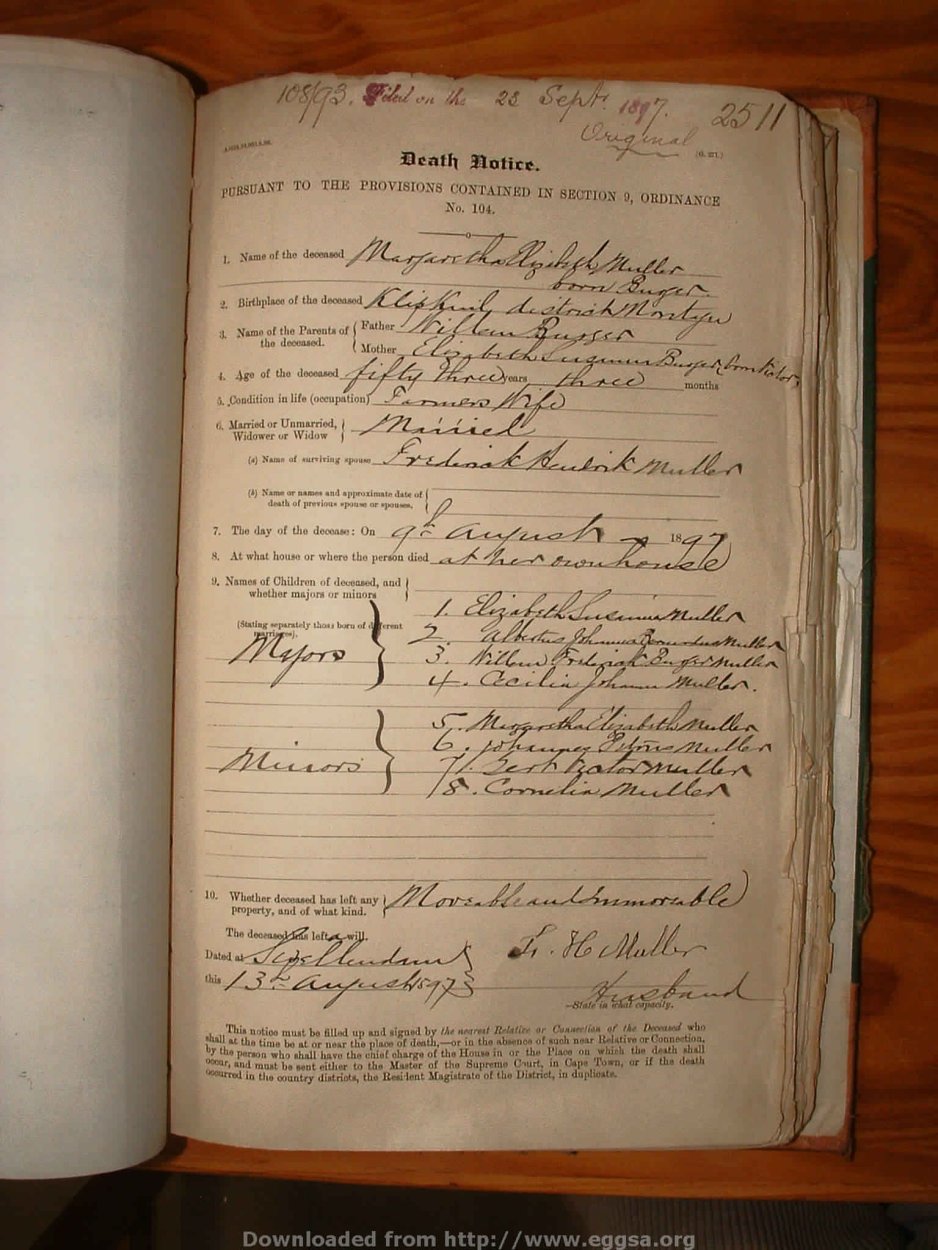 108/93. Filed on the 23 Sept. 1897. 2511
Original
(G. 271.)
Death Notice.
PURSUANT TO THE PROVISIONS CONTAINED IN SECTION 9, ORDINANCE
No. 104.
1. Name of the deceased Margaretha Elizabeth Muller
born Burger.
2. Birthplace of the deceased district Montagu
3. Name of the Parents of the deceased. { Father Willem Burger
Mother Elizabeth Susanna Burger (born Victor)
4. Age of the deceased fifty three years three months
5. Condition in life (occupation) Farmers Wife
6. Married or Unmarried, Widower or Widow } Married
(a) Name of surviving spouse Frederick Hendrik Muller
(b) Name or names and approximate date of
death of previous spouse or spouses. {
7. The day of the decease: On 9th August 1897
8. At what house or where the person died at her own house
9. Names of Children of deceased, and
whether majors or minors {
1. Elizabeth Susanna Muller
(Stating separately those born of different marriages).
2. Albertus Johannes Bernardus Muller
Majors } 3. Willem Frederick Burger Muller
4. Cecilia Johanna Muller.
5. Margaretha Elizabeth Muller
6. Johannes Petrus Muller
Minors } 7. Gert Victor Muller
8. Cornelia Muller
10. Whether deceased has left any
property, and of what kind. } Moveable and Immoveable
The deceased has left a will.
Dated at Swellendam } Fr. H Muller
this 13th August 1897 } Husband
—State in what capacity.
This notice must be filled up and signed by the nearest Relative or Connection of the Deceased who
shall at the time be at or near the place of death,—or in the absence of such near Relative or Connection,
by the person who shall have the chief charge of the House in or the Place on which the death shall
occur, and must be sent either to the Master of the Supreme Court, in Cape Town, or if the death
occurred in the country districts, the Resident Magistrate of the District, in duplicate.
Downloaded from http://www.eggsa.org